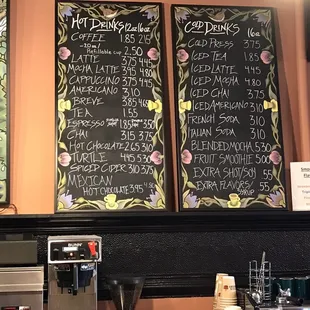 Hot Drinks 12oz 16oz
Coffee 1.85 2.15
Refillable cup 2.50
Latte 3.75 4.45
Mocha Latte 3.95 4.80
Cappuccino 3.75 4.45
Americano 3.10
Breve 3.85 4.60
Tea 1.55
Espresso 1.85 3.50
Chai 3.15 3.75
Hot Chocolate 2.65 3.10
Turtle 4.45 5.30
Spiced Cider 3.10
Mexican
Hot Chocolate 3.95 4.50
Cold Drinks 16oz
Cold Press 3.75
Iced Tea 1.85
Iced Latte 4.45
Iced Mocha 4.80
Iced Chai 3.75
Iced Americano 3.10
French Soda 3.10
Italian Soda 3.10
Blended Mocha 5.30
Fruit Smoothie 5.30
Extra Shot/Soy .55
Extra Flavors/Syrup .55
BUNN